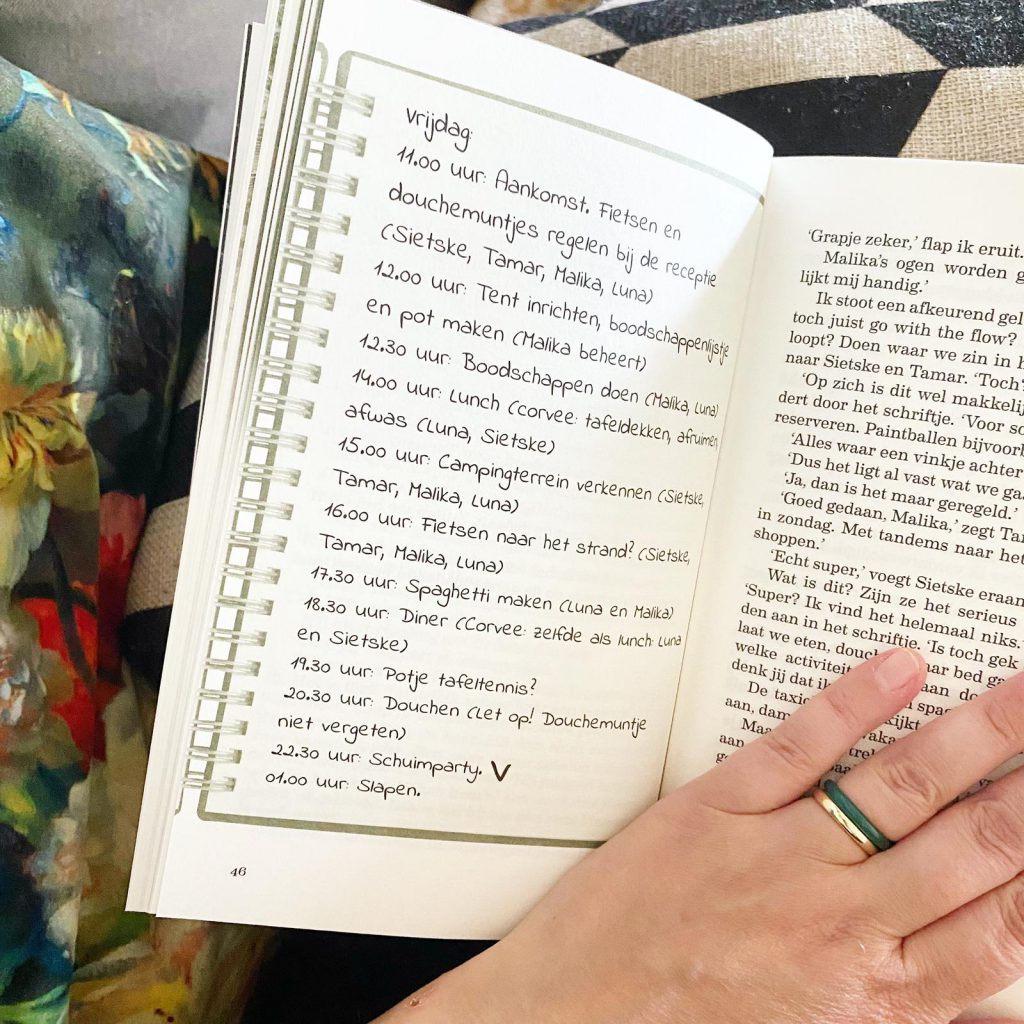 vrijdag:
11.00 uur: Aankomst. Fietsen en
douchemuntjes regelen bij de receptie
(Sietske, Tamar, Malika, Luna)
12.00 uur: Tent inrichten, boodschappenlijstje
en pot maken (Malika beheert)
12.30 uur: Boodschappen doen (Malika, Luna)
14.00 uur: Lunch (corvee: tafeldekken, afruimen,
afwas (Luna, Sietske)
15.00 uur: Campingterrein verkennen (Sietske,
Tamar, Malika, Luna)
16.00 uur: Fietsen naar het strand? (Sietske,
Tamar, Malika, Luna)
17.30 uur: Spaghetti maken (Luna en Malika)
18.30 uur: Diner (Corvee: zelfde als lunch: Luna
en Sietske)
19.30 uur: Potje tafeltennis?
20.30 uur: Douchen (Let op! Douchemuntje
niet vergeten)
22.30 uur: Schuimparty. V
01.00 uur: Slapen.
46
‘Grapje zeker,’ flap ik eruit.
Malika’s ogen worden
lijkt mij handig.’
Ik stoot een afkeurend
toch juist go with the flow?
loopt? Doen waar we zin in
naar Sietske en Tamar. ‘Toch
‘Op zich is dit wel makkelij
dert door het schriftje. ‘Voor
reserveren. Paintballen
‘Alles waar een vinkje achter
‘Dus het ligt al vast wat we
‘Ja, dan is het maar geregeld.’
‘Goed gedaan, Malika,’ zegt
in zondag. Met tandems naar het
shoppen.’
‘Echt super,’ voegt Sietske eraan
Wat is dit? Zijn ze het serieus
‘Super? Ik vind het helemaal niks.
den aan in het schriftje. ‘Is toch gek
laat we eten, naar bed
welke aan
denk jij dat
De
aan,
aan